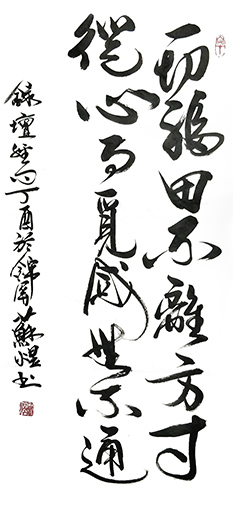 一切福田不離方寸
從心而覓感無不通
錄壇經句丁酉於錦屏蘇煜書